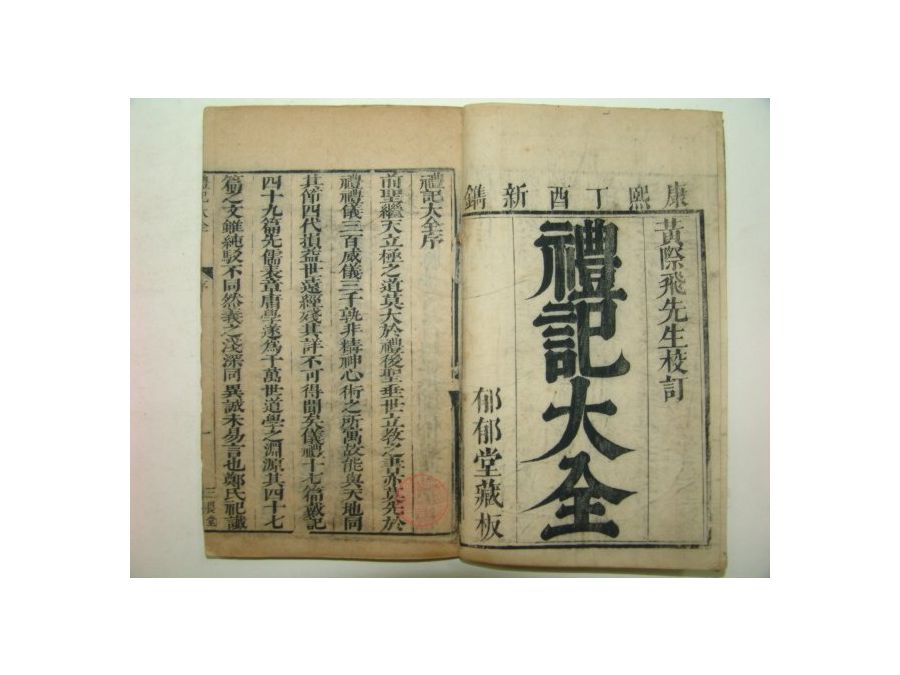 康熙丁酉新鐫
黃際飛先生校訂
禮記大全
郁郁堂藏板
禮記大全序
前聖繼天立極之道莫大於禮後聖垂世立教之書亦莫先於
禮禮儀三百威儀三千孰非精神心術之所寓故能與天地同
其節四代損益世遠經殘其詳不可得聞矣儀禮十七篇戴記
四十九篇先儒表章庸學遂爲千萬世道學之淵源其四十七
篇之文雖純駁不同然義之淺深同異誠未易言也鄭氏祀讖
禮記大全
序
一